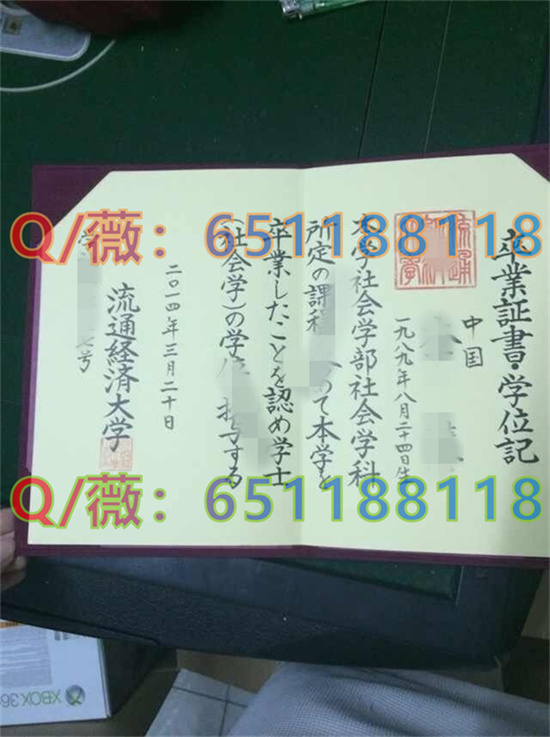 卒業証書・学位記
流通
経済
大学
中国
一九八九年八月二十四日生
本学社会学部社会学科
所定の課程 めて本学を
卒業したことを認め学士
(社会学)の学位 授与する
二〇一四年三月二十日
流通経済大学
学 号
Q/薇：651188118
Q/薇：651188118
XBOX 360